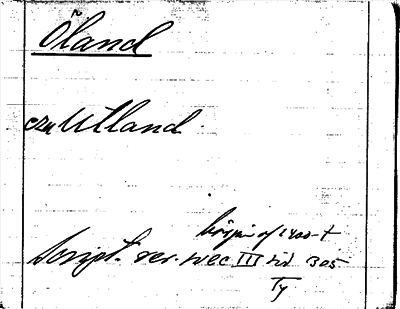 Öland
Utland
början af 1400-t
Script. rer. svec III sid 305
Ty